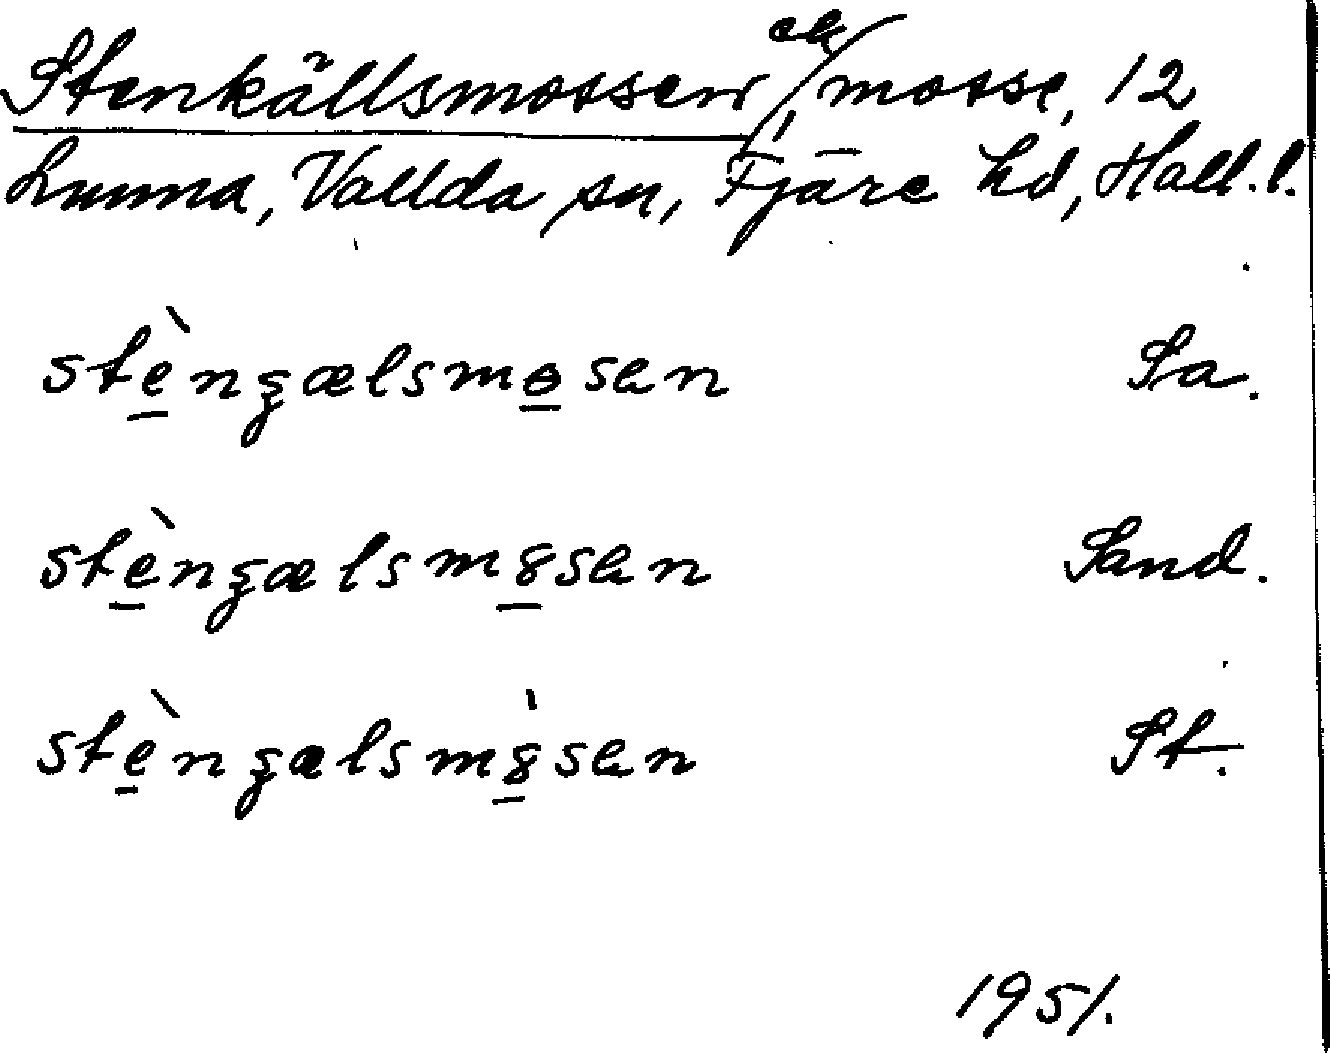 Stenkällsmossen, ek/ mosse, 12
Lunna, Vallda sn, Fjäre hd, Hall. l.
stè̱nʒælsmo̱sen Sa.
stè̱nʒælsm8̱sen Sand.
stè̱nʒælsm8̱̀sen St.
1951.